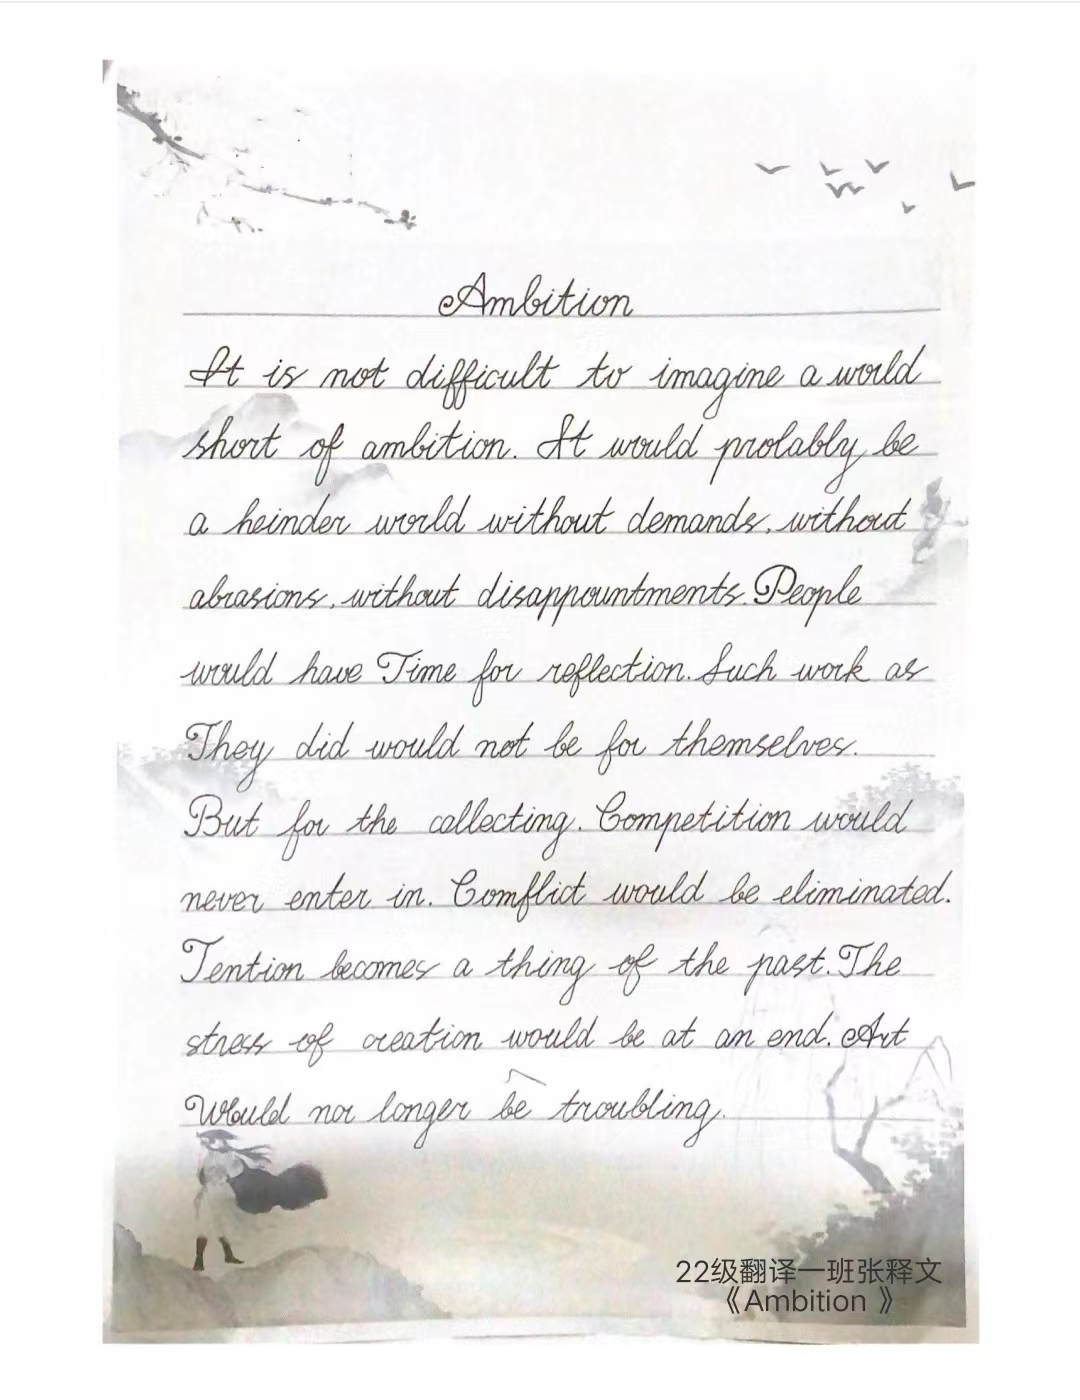 Ambition
It is not difficult to imagine a world
short of ambition. It would prolably be
a heinder world without demands, without
abrasions, without disappountments. People
would have Time for reflection. Such work as
They did would not be for themselves.
But for the collecting. Competition would
never enter in. Comflict would be eliminated.
Tention becomes a thing of the past. The
stress of creation would be at an end. Art
Would nor longer be troubling.
22级翻译一班张释文
《Ambition 》